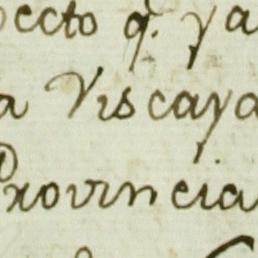 ecto q. ya
a Viscaya
Provincia